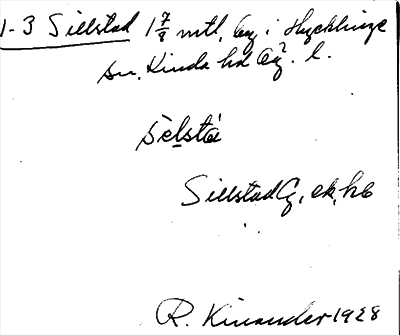 1-3 Sillstad 1 7/8 mtl, by i Hycklinge
sn, Kinda hd Ög. l.
Sillstad
R. Kinander 1928